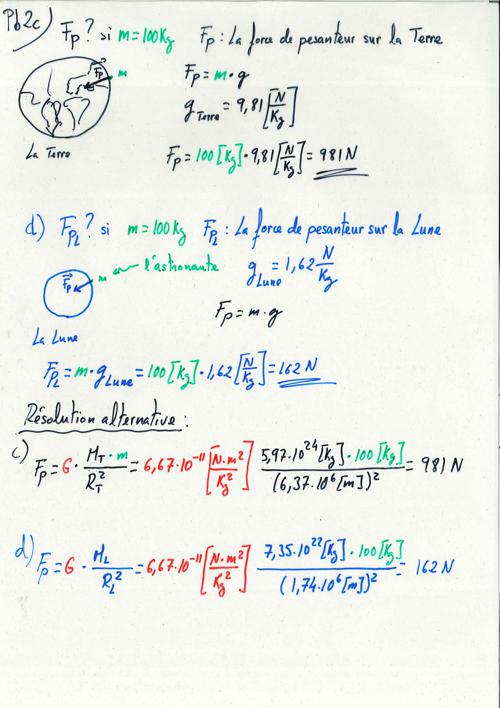 Pb2c) Fp? si m=100Kg Fp : La force de pesanteur sur la Terre
Fp m
Fp = m·g
g Terre = 9,81 [N/Kg]
La Terre
Fp = 100 [Kg] · 9,81 [N/Kg] = 981 N
d) FpL? si m=100Kg FpL : La force de pesanteur sur la Lune
Fp m ← l'astronaute
g Lune = 1,62 N/Kg
Fp = m·g
La Lune
FpL = m·g Lune = 100 [Kg] · 1,62 [N/Kg] = 162 N
Résolution alternative :
c) Fp = G · MT·m/RT² = 6,67·10⁻¹¹ [N·m²/Kg²] 5,97·10²⁴ [Kg] · 100 [Kg]/(6,37·10⁶ [m])² = 981 N
d) Fp = G · ML/RL² = 6,67·10⁻¹¹ [N·m²/Kg²] 7,35·10²² [Kg] · 100 [Kg]/(1,74·10⁶ [m])² = 162 N